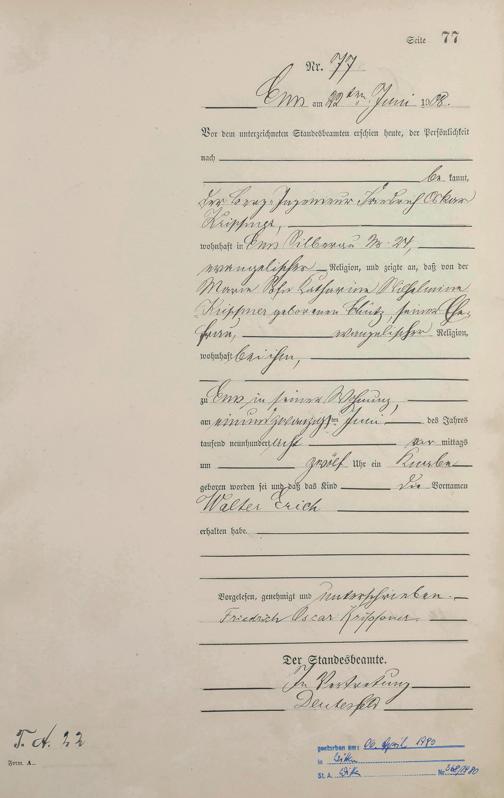 Seite 77
Nr. 77
Ems am 22ten Juni 1908.
Vor dem unterzeichneten Standesbeamten erschien heute, der Persönlichkeit
nach
be kannt,
der Berg-Ingenieur Friedrich Oskar
wohnhaft in Ems Silberau Nr. 24,
evangelischer Religion, und zeigte an, daß von der
Marie Catharine Wilhelmine
geborenen seiner Ehe-
frau, evangelischer Religion,
wohnhaft bei ihm,
zu Ems in seiner Wohnung,
am einundzwanzigsten Juni des Jahres
tausend neunhundert acht vor mittags
um zwölf Uhr ein Knabe
geboren worden sei und daß das Kind die Vornamen
Walter Erich
erhalten habe.
Vorgelesen, genehmigt und unterschrieben.
Friedrich Oscar
Der Standesbeamte.
In Vertretung
T. A. 22
Form. A.
gestorben am: 06. April 1980
in
St. A. Nr.